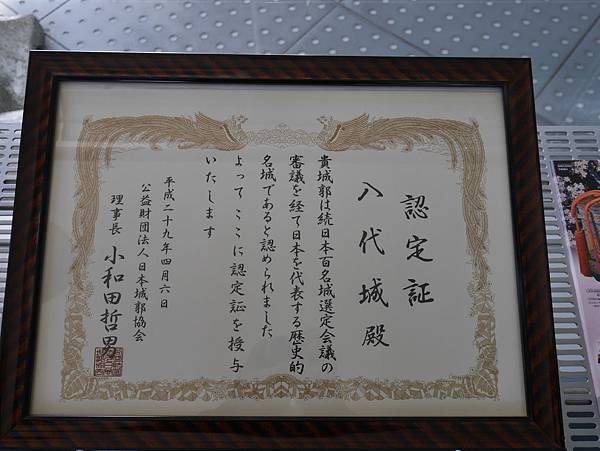 認定証
八代城殿
貴城郭は続日本百名城選定会議の
審議を経て日本を代表する歴史的
名城であると認められました
よってここに認定証を授与
いたします
平成二十九年四月六日
公益財団法人日本城郭協会
理事長 小和田哲男